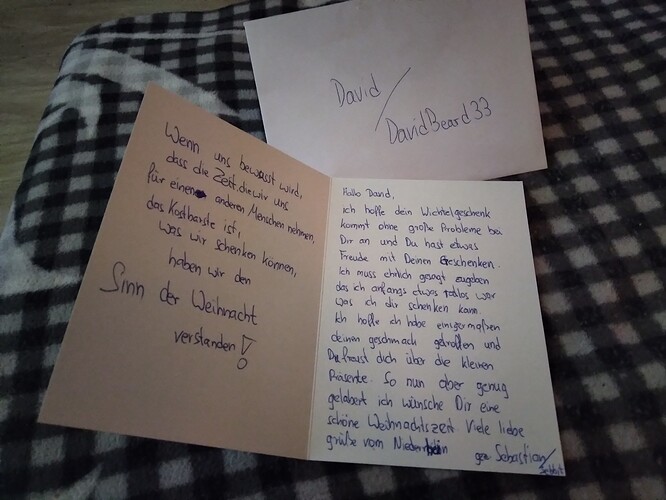 David/
DavidBeard33
Wenn uns bewusst wird,
dass die Zeit, die wir uns
für einen anderen Menschen nehmen,
das Kostbarste ist,
was wir schenken können,
haben wir den
Sinn der Weihnacht
verstanden!
Hallo David,
ich hoffe dein Wichtelgeschenk
kommt ohne große Probleme bei
Dir an und Du hast etwas
Freude mit Deinen Geschenken.
Ich muss ehrlich gesagt zugeben
das ich anfangs etwas ratlos war
was ich dir schenken kann.
Ich hoffe ich habe einigermaßen
deinen geschmack getroffen und
Du freust dich über die kleinen
Präsente. So nun aber genug
gelabert ich wünsche Dir eine
schöne Weihnachtszeit Viele liebe
grüße vom Niederrhein
gez Sebastian/